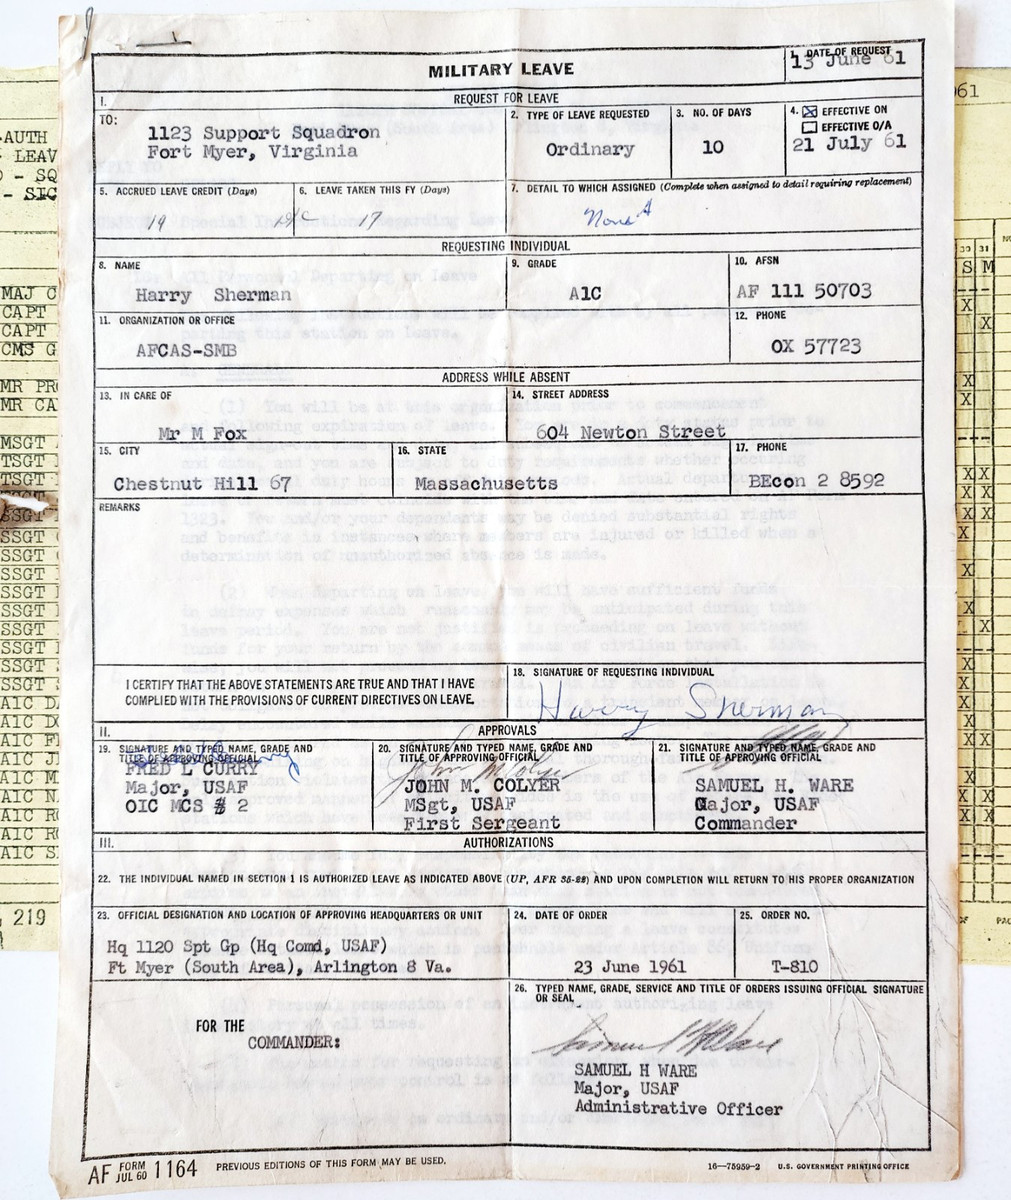 MILITARY LEAVE
1. DATE OF REQUEST
13 June 61
I. REQUEST FOR LEAVE
TO:
1123 Support Squadron
Fort Myer, Virginia
2. TYPE OF LEAVE REQUESTED
Ordinary
3. NO. OF DAYS
10
4. ☒ EFFECTIVE ON
☐ EFFECTIVE O/A
21 July 61
5. ACCRUED LEAVE CREDIT (Days)
19
6. LEAVE TAKEN THIS FY (Days)
17
7. DETAIL TO WHICH ASSIGNED (Complete when assigned to detail requiring replacement)
None
REQUESTING INDIVIDUAL
8. NAME
Harry Sherman
9. GRADE
A1C
10. AFSN
AF 111 50703
11. ORGANIZATION OR OFFICE
AFCAS-SMB
12. PHONE
OX 57723
ADDRESS WHILE ABSENT
13. IN CARE OF
Mr M Fox
14. STREET ADDRESS
604 Newton Street
15. CITY
Chestnut Hill 67
16. STATE
Massachusetts
17. PHONE
BEcon 2 8592
REMARKS
I CERTIFY THAT THE ABOVE STATEMENTS ARE TRUE AND THAT I HAVE
COMPLIED WITH THE PROVISIONS OF CURRENT DIRECTIVES ON LEAVE.
18. SIGNATURE OF REQUESTING INDIVIDUAL
Harry Sherman
II. APPROVALS
19. SIGNATURE AND TYPED NAME, GRADE AND
TITLE OF APPROVING OFFICIAL
FRED L CURRY
Major, USAF
OIC MCS # 2
20. SIGNATURE AND TYPED NAME, GRADE AND
TITLE OF APPROVING OFFICIAL
JOHN M. COLYER
MSgt, USAF
First Sergeant
21. SIGNATURE AND TYPED NAME, GRADE AND
TITLE OF APPROVING OFFICIAL
SAMUEL H. WARE
Major, USAF
Commander
III. AUTHORIZATIONS
22. THE INDIVIDUAL NAMED IN SECTION 1 IS AUTHORIZED LEAVE AS INDICATED ABOVE (UP, AFR 35-22) AND UPON COMPLETION WILL RETURN TO HIS PROPER ORGANIZATION
23. OFFICIAL DESIGNATION AND LOCATION OF APPROVING HEADQUARTERS OR UNIT
Hq 1120 Spt Gp (Hq Comd, USAF)
Ft Myer (South Area), Arlington 8 Va.
24. DATE OF ORDER
23 June 1961
25. ORDER NO.
T-810
FOR THE
COMMANDER:
26. TYPED NAME, GRADE, SERVICE AND TITLE OF ORDERS ISSUING OFFICIAL SIGNATURE
OR SEAL
Samuel H Ware
SAMUEL H WARE
Major, USAF
Administrative Officer
AF FORM JUL 60 1164
PREVIOUS EDITIONS OF THIS FORM MAY BE USED.
16—75959-2 U.S. GOVERNMENT PRINTING OFFICE
AUTH
LEAV
- SQ
- SIC
MAJ C
CAPT
CAPT
CMS G
MR PR
MR CA
MSGT
TSGT
TSGT
SSGT
SSGT
SSGT
SSGT
SSGT
SSGT
SSGT
SSGT
SSGT
SSGT
A1C D
A1C D
A1C F
A1C J
A1C M
A1C N
A1C R
A1C R
A1C S
219
61
30 31
S M